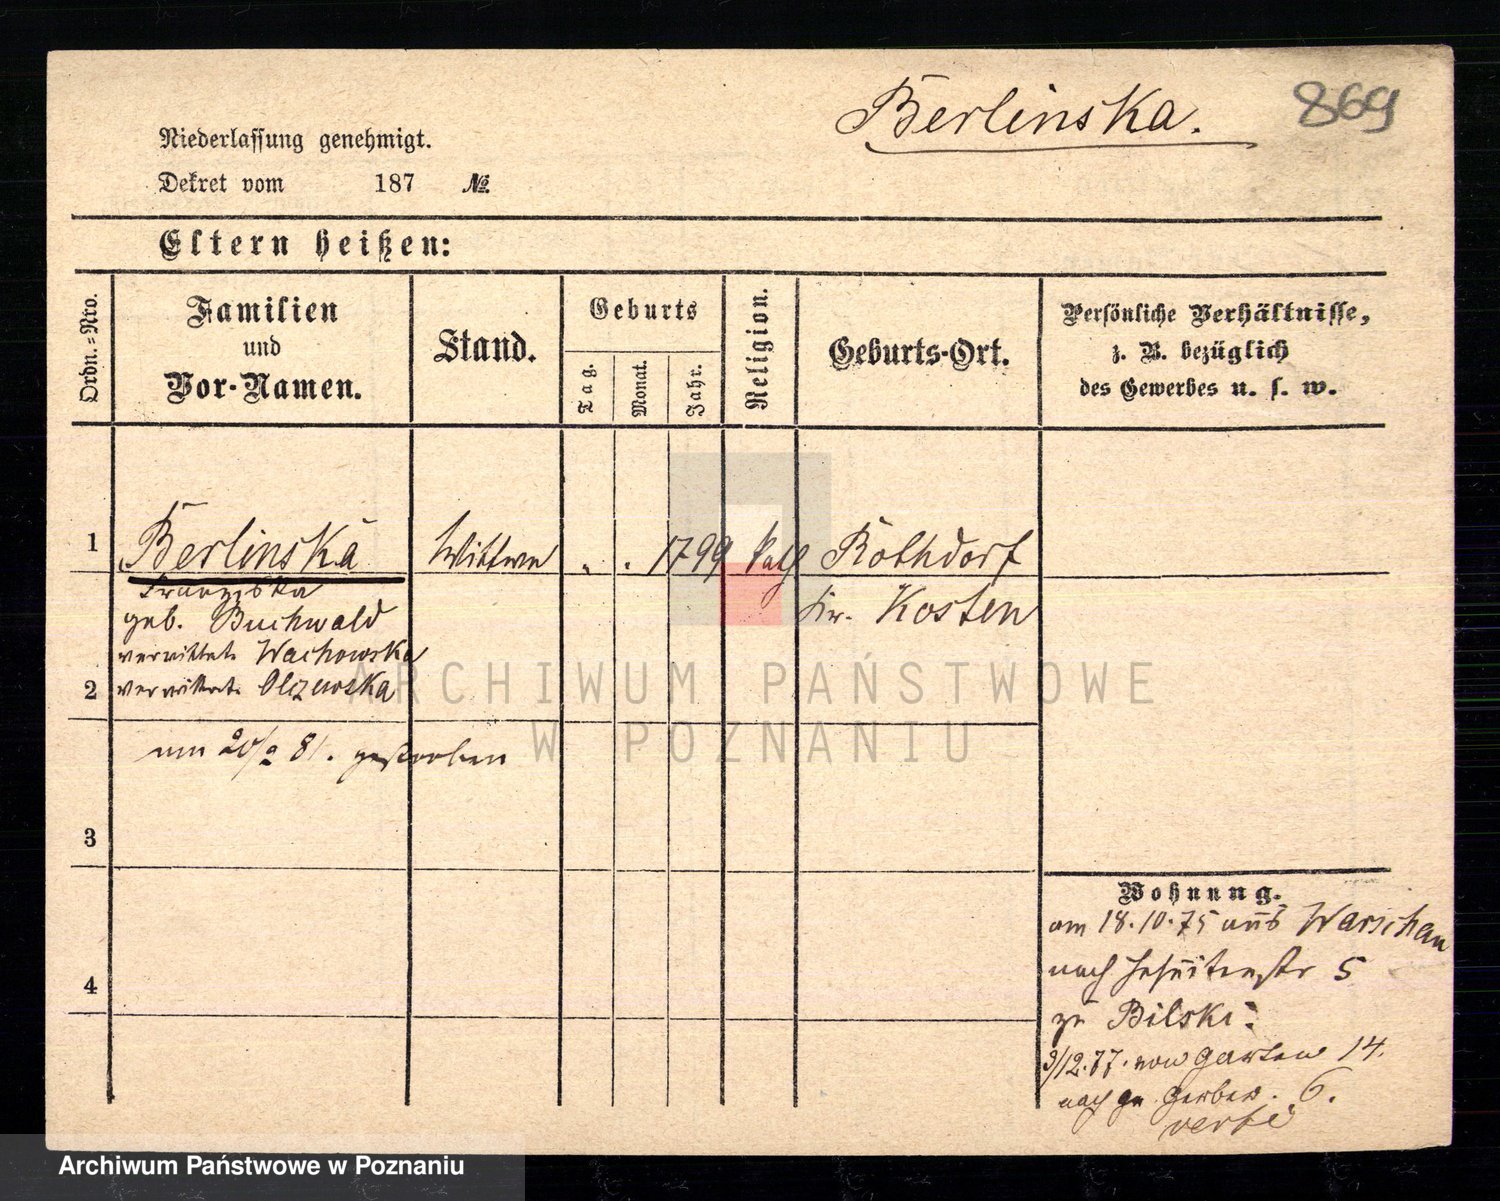 Berlinska.
869
Niederlassung genehmigt.
Dekret vom 187 №
Eltern heißen:
Ordn.=Nro.
Familien und Vor-Namen.
Stand.
Geburts
Tag.
Monat.
Jahr.
Religion.
Geburts-Ort.
Persönliche Verhältnisse,
z. B. bezüglich
des Gewerbes u. s. w.
1 Berlinska Wittwe " . 1799 kath Rothdorf
Franziska Kr. Kosten
geb. Buchwald
verwittwete Wachowska
2 verwittwete Olczewska
am 20/2 81. gestorben
3
4
Wohnung.
am 18.10.75 aus Warschau
nach Jesuitenstr 5
zu Bilski.
3/12.77. von Garten 14.
nach gr. Gerber. 6.
ARCHIWUM PAŃSTWOWE
W POZNANIU
Archiwum Państwowe w Poznaniu